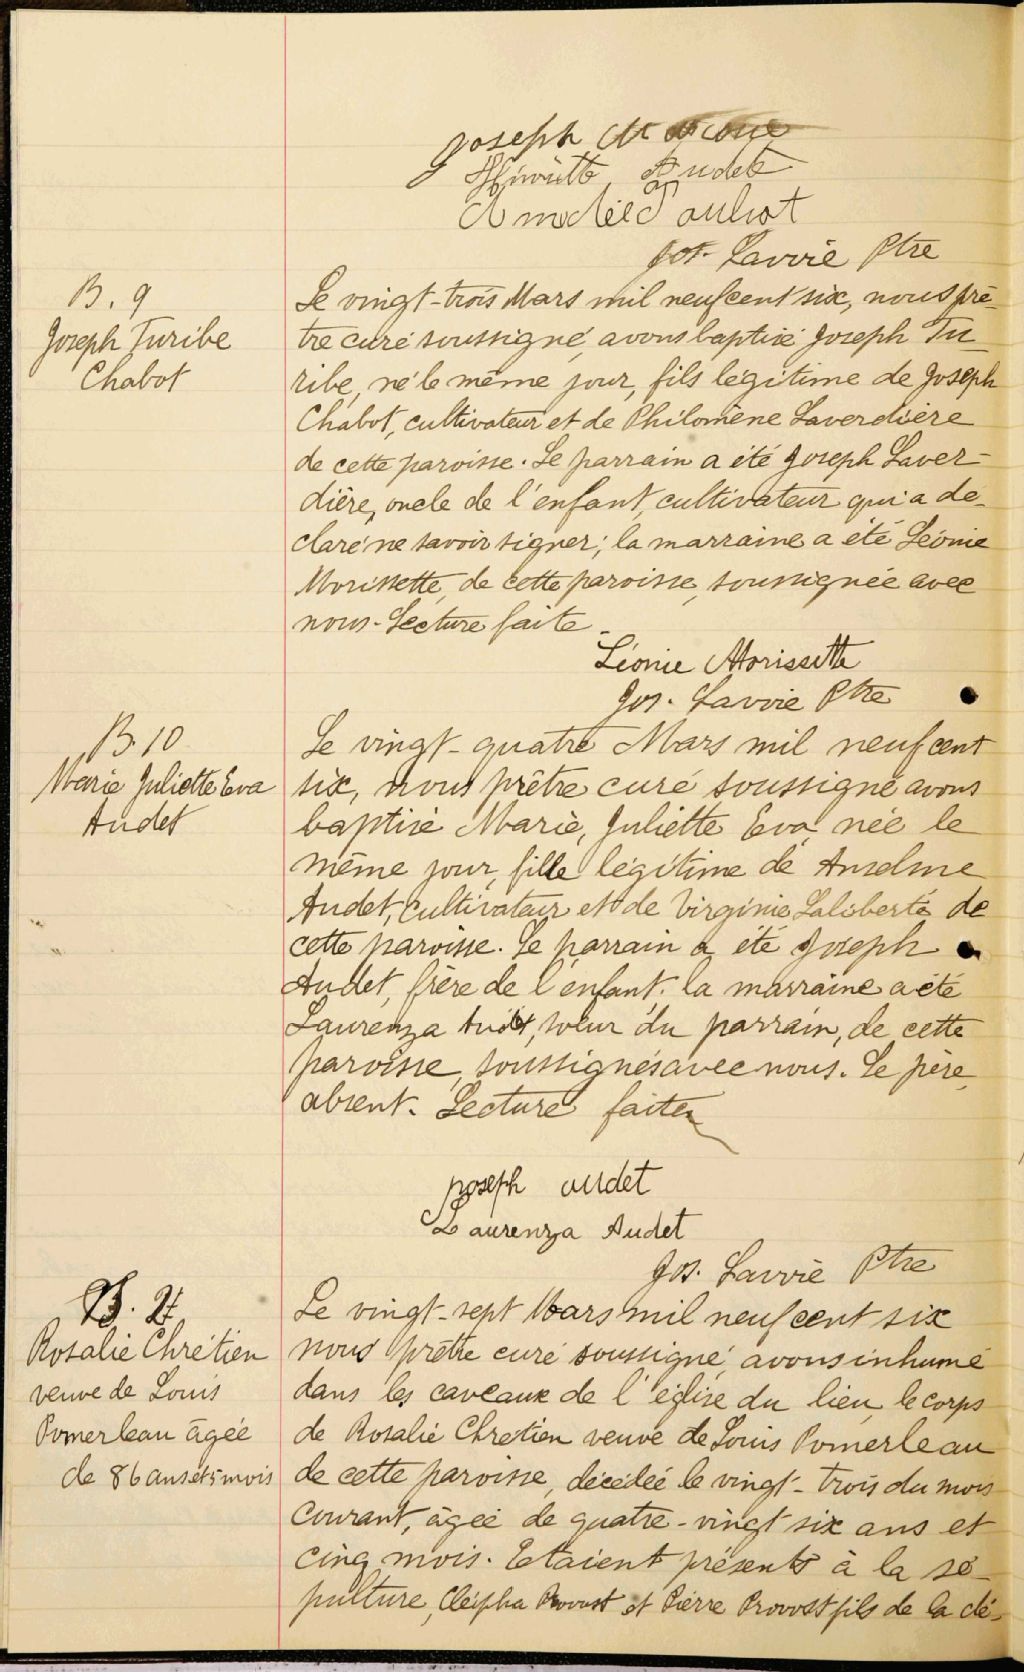 Joseph
Audet
Amédée Pouliot
Jos. Lavoie Ptre
B. 9
Joseph Turibe
Chabot
Le vingt-trois Mars mil neuf cent six, nous prê-
tre curé soussigné, avons baptisé Joseph Tu-
ribe, né le même jour, fils légitime de Joseph
Chabot, cultivateur et de Philomène Laverdière
de cette paroisse. Le parrain a été Joseph Laver-
dière, oncle de l'enfant, cultivateur qui a dé-
claré ne savoir signer; la marraine a été Léonie
Morissette, de cette paroisse, soussignée avec
nous. Lecture faite.
Léonie Morissette
Jos. Lavoie Ptre
B. 10
Marie Juliette Eva
Audet
Le vingt-quatre Mars mil neuf cent
six, nous prêtre curé soussigné avons
baptisé Marie, Juliette Eva, née le
même jour, fille légitime de Anselme
Audet, cultivateur et de Virginie Laliberté de
cette paroisse. Le parrain a été Joseph
Audet, frère de l'enfant; la marraine a été
Laurenza Audet, soeur du parrain, de cette
paroisse, soussignés avec nous. Le père
absent. Lecture faite
Joseph audet
Laurenza Audet
Jos. Lavoie Ptre
Rosalie Chrétien
veuve de Louis
Pomerleau âgée
de 86 ans et 5 mois
Le vingt-sept Mars mil neuf cent six
nous prêtre curé soussigné, avons inhumé
dans les caveaux de l'église du lieu, le corps
de Rosalie Chretien veuve de Louis Pomerleau
de cette paroisse, décédée le vingt-trois du mois
courant, âgée de quatre-vingt six ans et
cinq mois. Etaient présents à la sé-
pulture, Cléopha Provost et Pierre Provost fils de la dé-